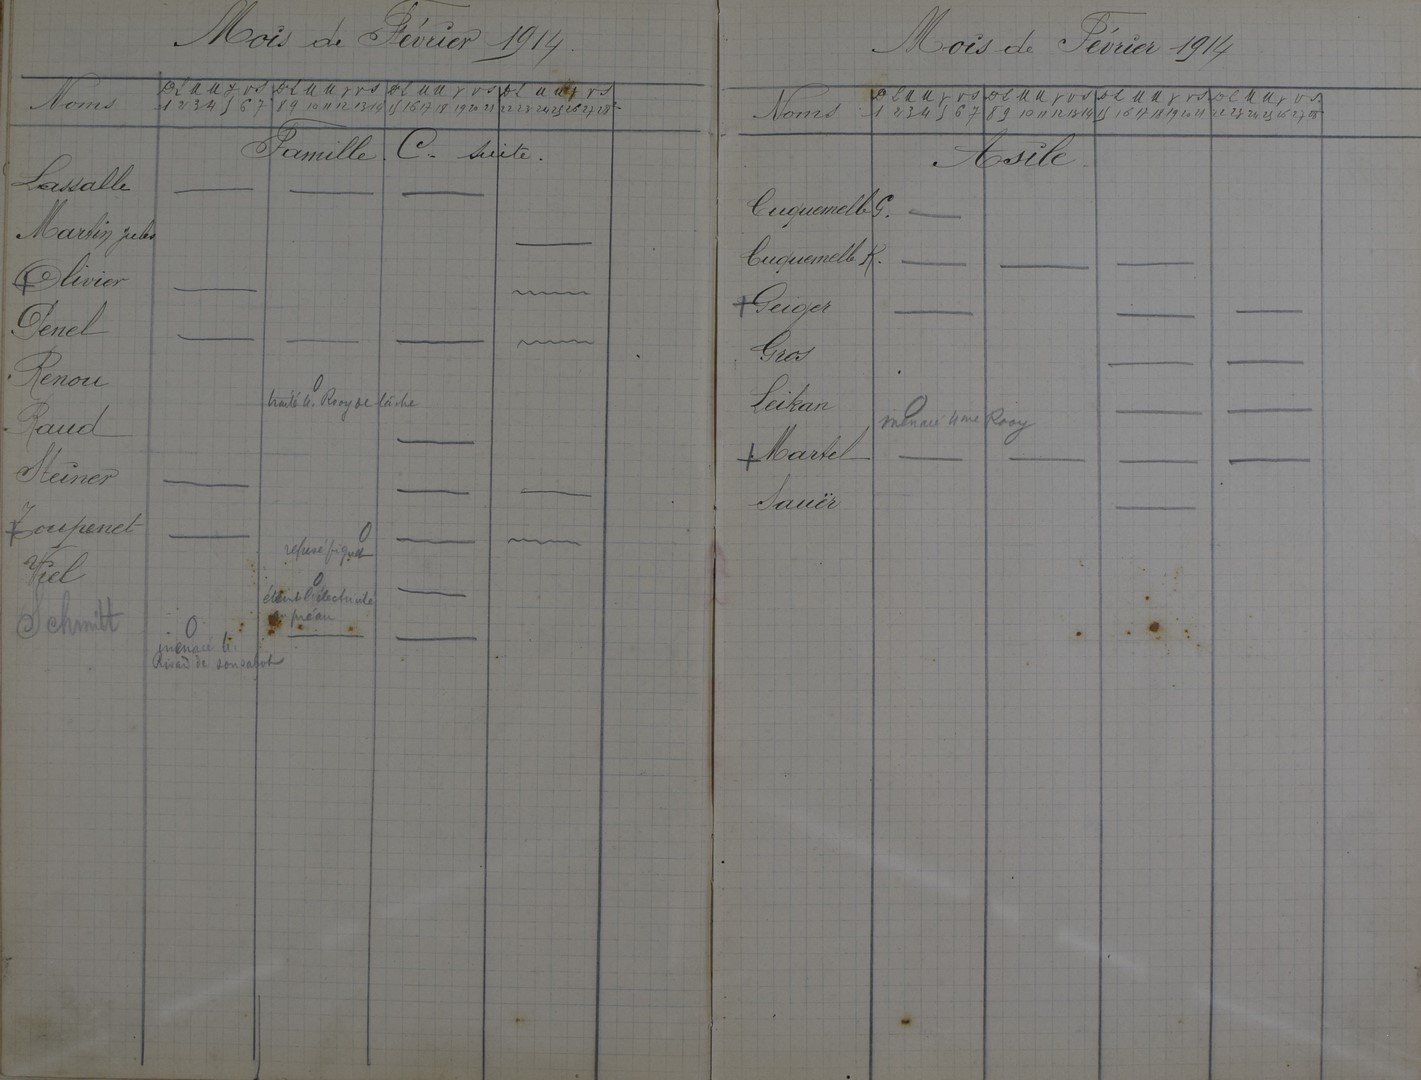 Mois de Février 1914.
Noms D L M M J V S D L M M J V S D L M M J V S D L M M J V S
1 2 3 4 5 6 7 8 9 10 11 12 13 14 15 16 17 18 19 20 21 22 23 24 25 26 27 28
Famille C. suite.
Lassalle
Martin Jules
Olivier
Penel
Renou 0
traité Mr Rooy de lâche
Raud
Steiner
Toupenet 0
refusé
Viel 0
éteint l'électricité
préau
Schmitt 0
menacé Mr
de son sabot
Mois de Février 1914
Noms D L M M J V S D L M M J V S D L M M J V S D L M M J V S
1 2 3 4 5 6 7 8 9 10 11 12 13 14 15 16 17 18 19 20 21 22 23 24 25 26 27 28
Asile.
Cuquemelle G.
Cuquemelle K.
Geiger
Gros
Leikan 0
menacé Mme Rooy
Martel
Sauër